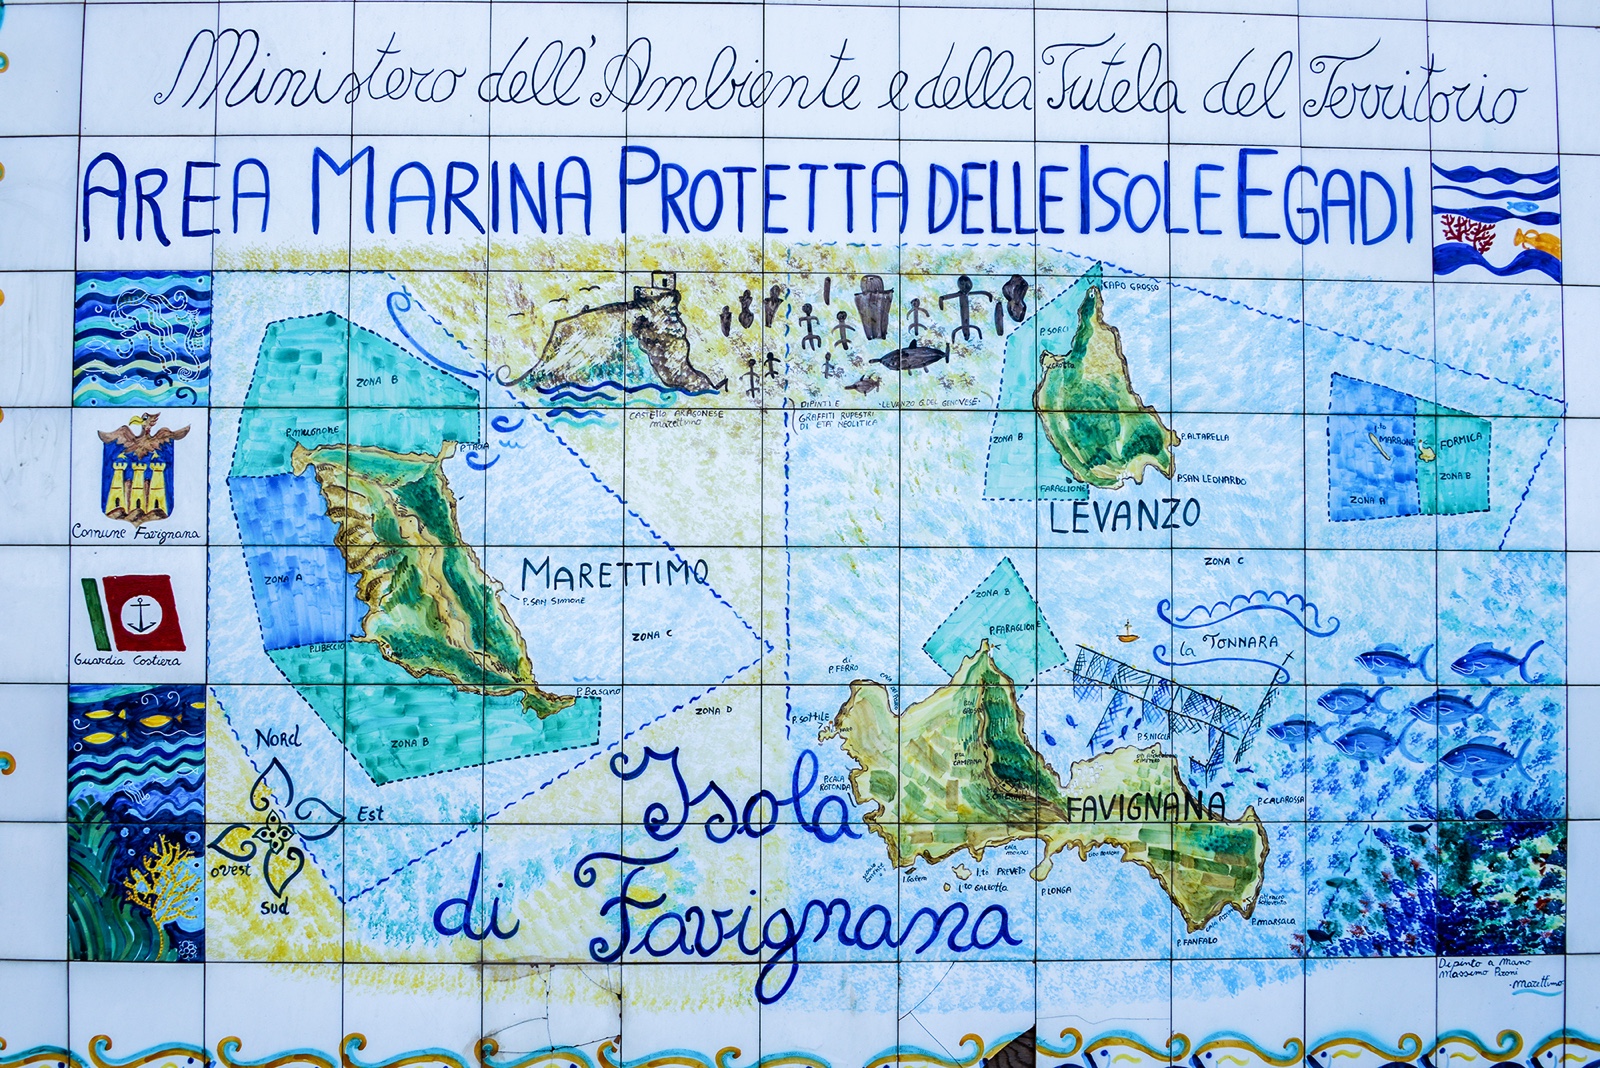 Ministero dell'Ambiente e della Tutela del Territorio
AREA MARINA PROTETTA DELLE ISOLE EGADI
Comune Favignana
Guardia Costiera
ZONA B
P. MUGNONE
P. TROIA
ZONA A
MARETTIMO
P. SAN SIMONE
P. LIBECCIO
ZONA C
P. Basano
ZONA D
ZONA B
CASTELLO ARAGONESE
Marettimo
DIPINTI E
GRAFFITI RUPESTRI
DI ETÀ NEOLITICA
LEVANZO G. DEL GENOVESE
CAPO GROSSO
P. SORCI
ZONA B
P. ALTARELLA
P. SAN LEONARDO
FARAGLIONE
LEVANZO
MARAONE
FORMICA
ZONA A
ZONA B
ZONA C
ZONA B
P. FARAGLIONE
la TONNARA
P. FERRO
P. SOTTILE
P. CALA
ROTONDA
P. S. NICOLA
FAVIGNANA
P. CALAROSSA
I. GALERA
I.to PREVETO
I.to GALEOTTA
P. LONGA
P. MARSALA
P. FANFALO
Nord
Est
ovest
Sud
Isola
di Favignana
Dipinto a Mano
Massimo Pironi
Marettimo